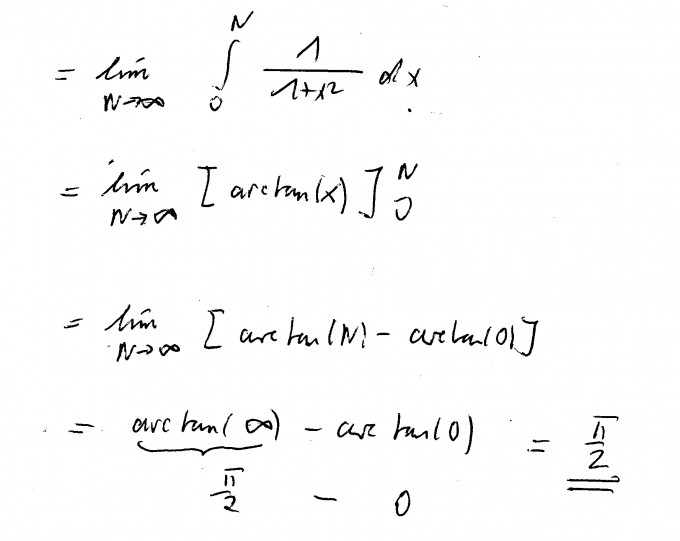 = lim N→∞ ∫₀ᴺ 1/(1+x²) dx
= lim N→∞ [arctan(x)]₀ᴺ
= lim N→∞ [arctan(N) - arctan(0)]
= arctan(∞) - arctan(0) = π/2
π/2 - 0